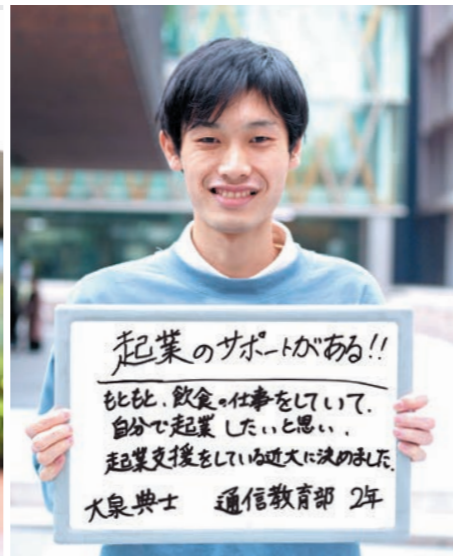 起業のサポートがある!!
もともと、飲食の仕事をしていて、
自分で起業したいと思い、
起業支援をしている近大に決めました。
大泉典士 通信教育部 2年